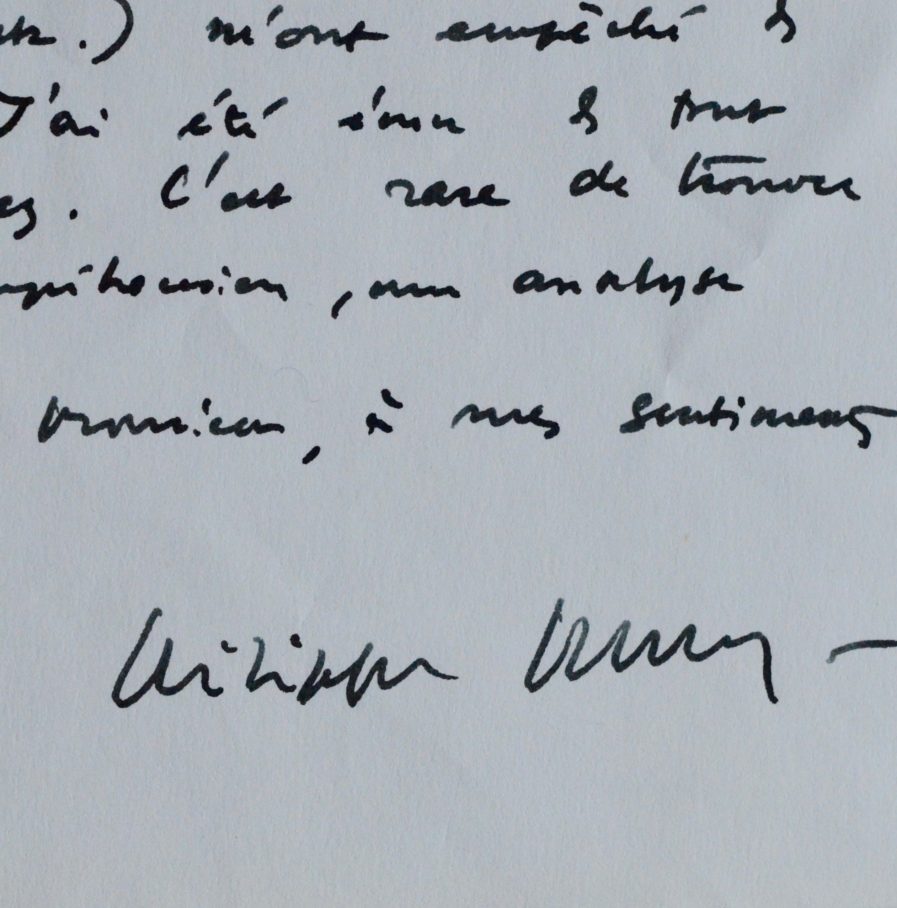 etc.) m'ont empêché de
J'ai été ému de tout
C'est rare de trouver
compréhension, une analyse
Monsieur, à mes sentiments
Philippe